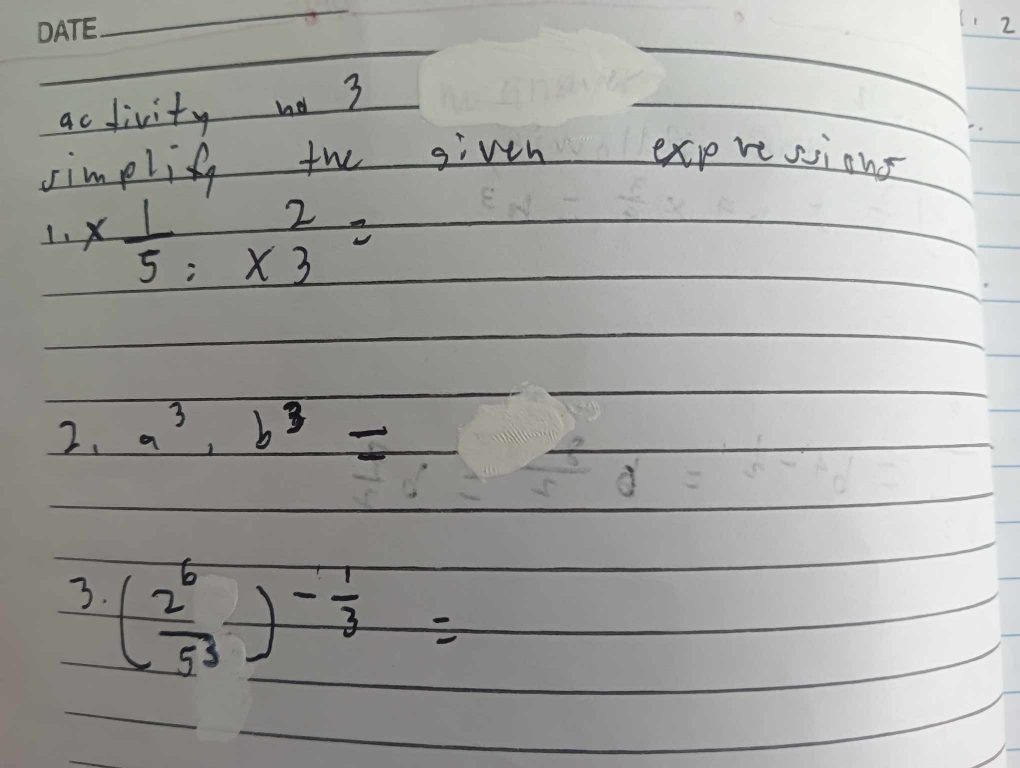 DATE
2
activity no 3
simplify the given expressions
1. x 1/5 ; x 2/3 =
2. a³ , b³ =
3. (2⁶/5³) - 1/3 =